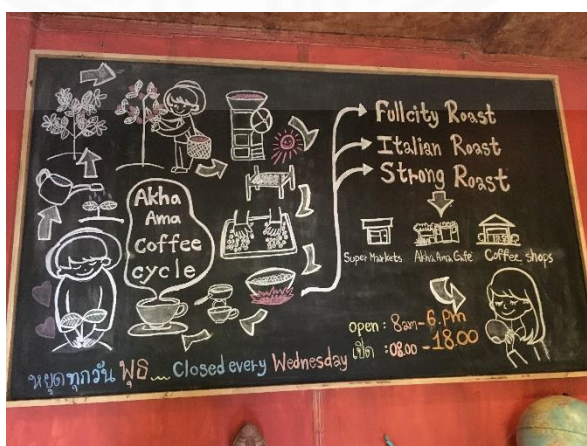 Akha
Ama
Coffee
cycle
Fullcity Roast
Italian Roast
Strong Roast
Super Markets
Akha Ama Cafe
Coffee shops
open : 8am - 6.Pm
เปิด : 08.00 - 18.00
หยุดทุกวัน พุธ.... Closed every Wednesday